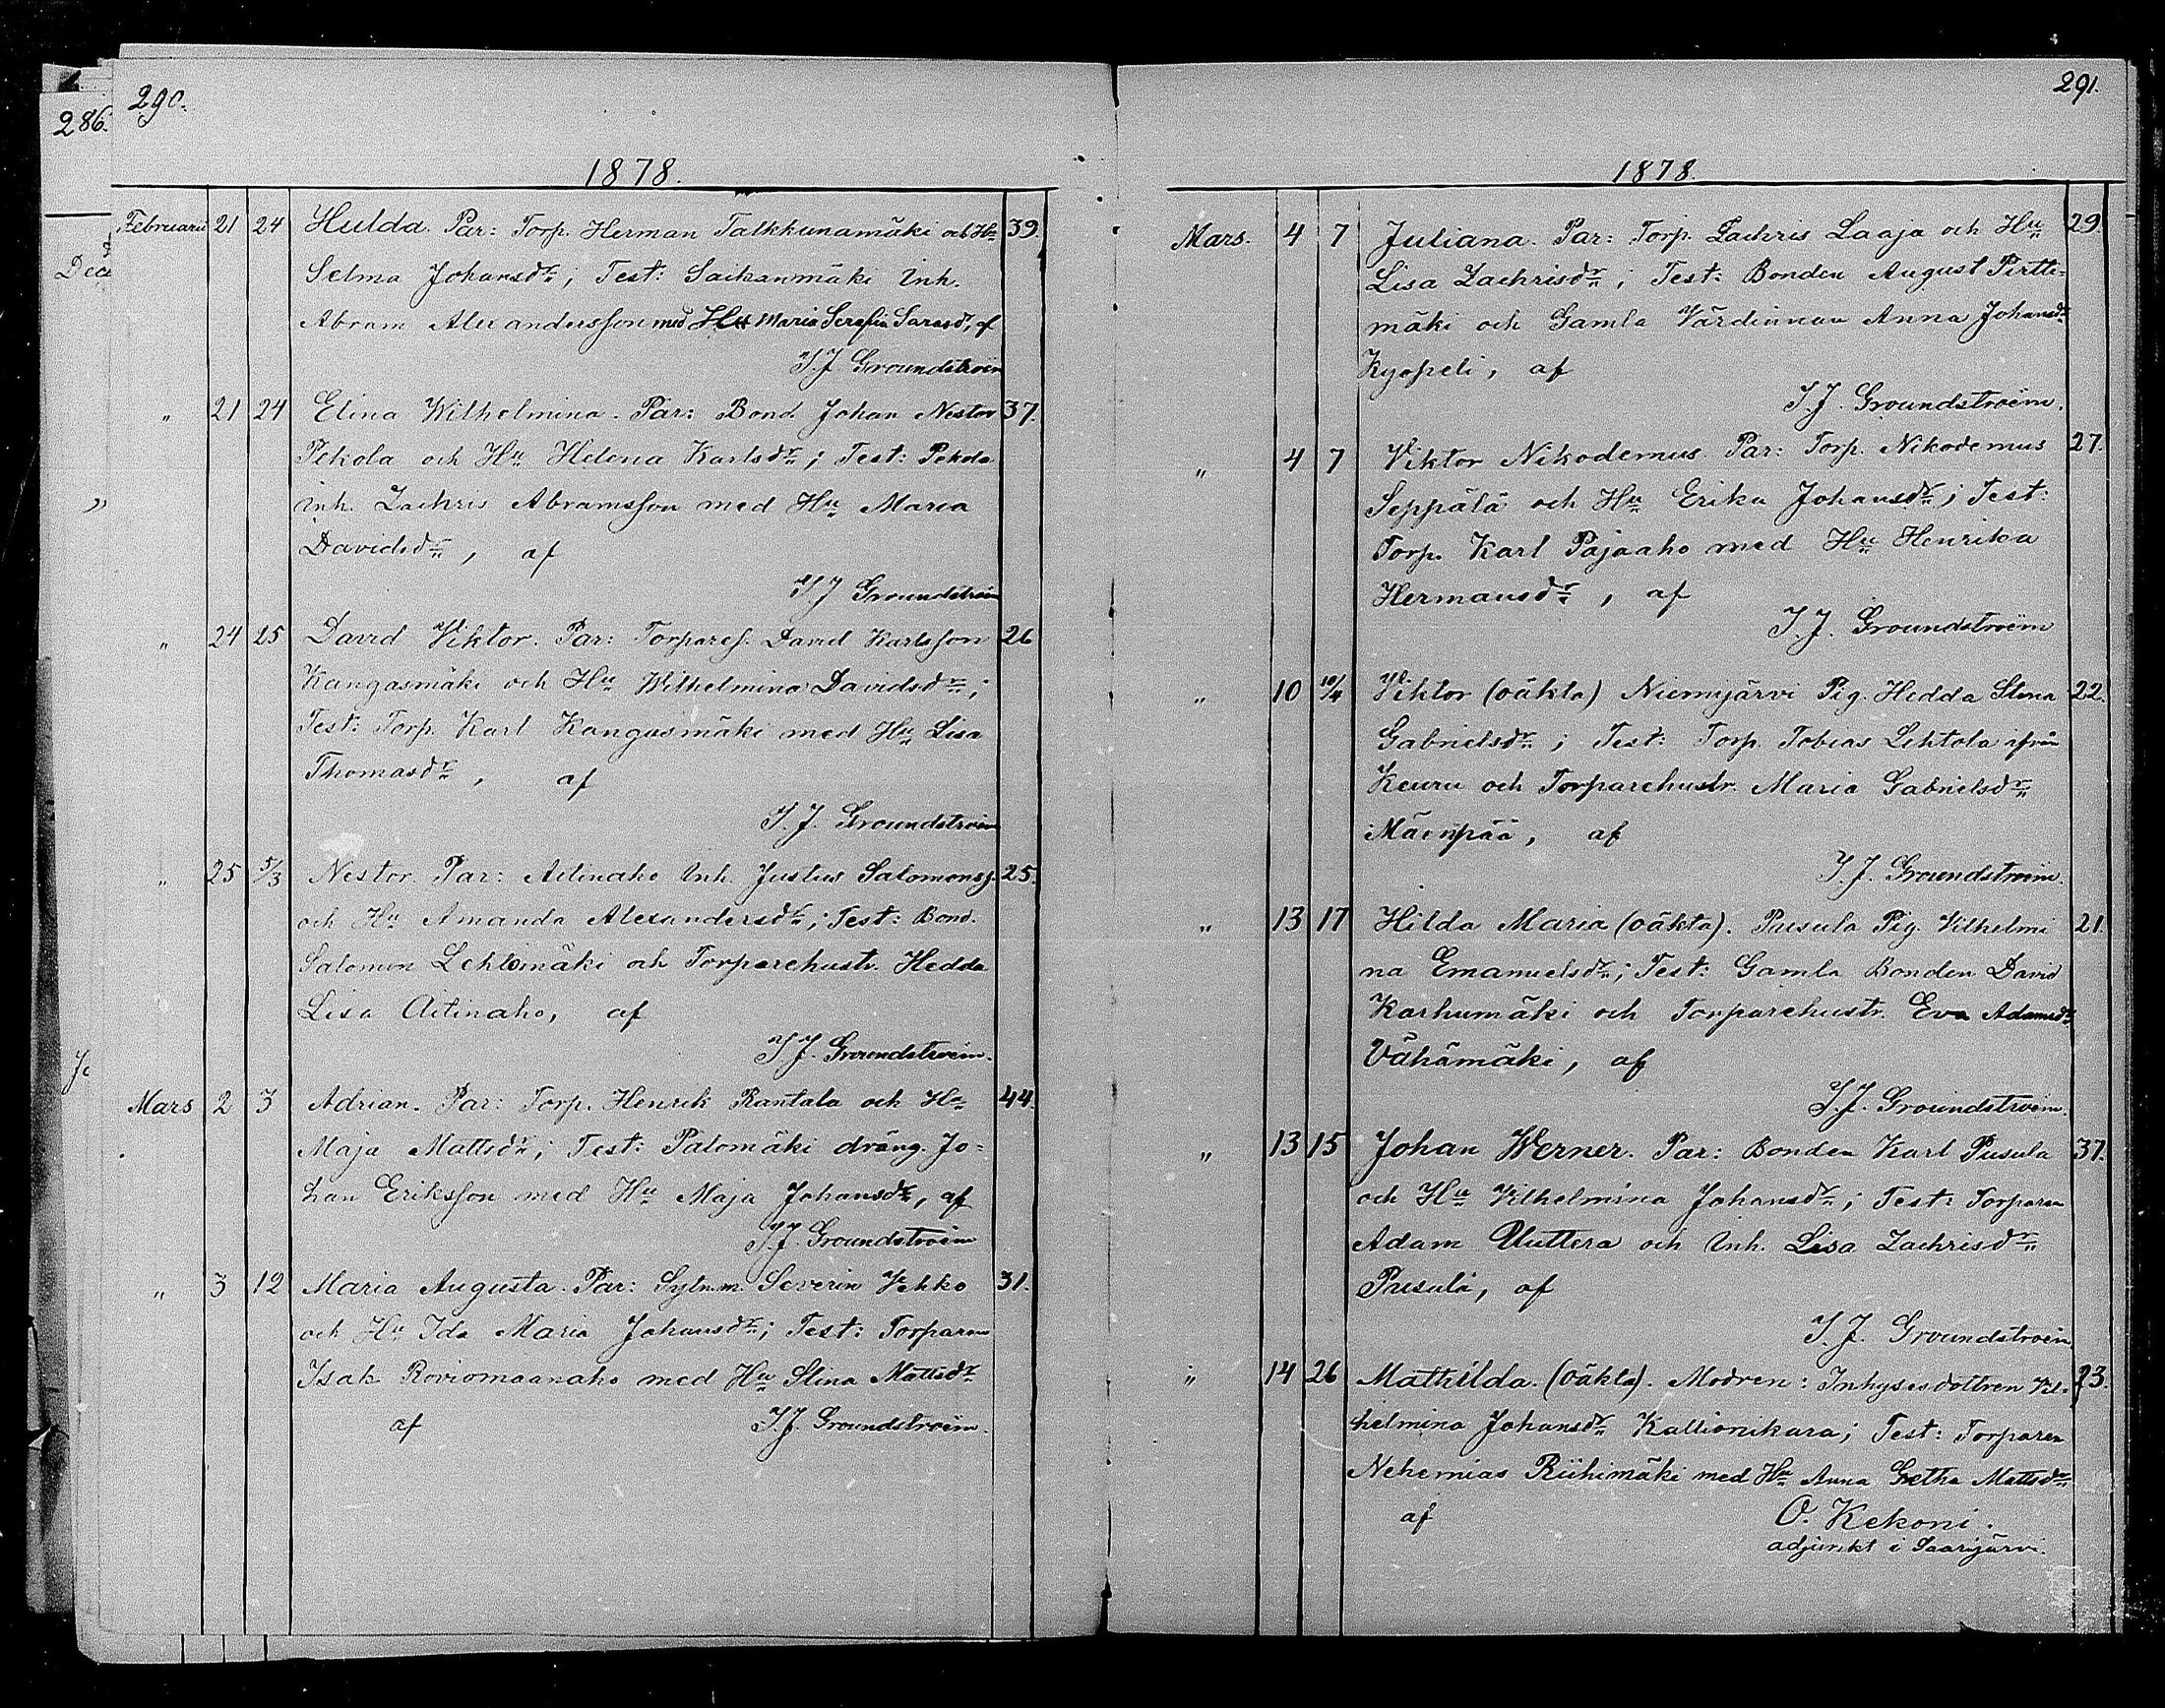 286.
290.
1878.
Februarii 21 24 Hulda. Par: Torp. Herman Talkkunamäki och Hu 39.
Selma Johansdr; Test: Saikanmäki Inh.
Abram Alexandersson med Hu Maria Serafia Sarasdr, af
I.J. Groundstroëm
" 21 24 Elina Wilhelmina. Par: Bond. Johan Nestor 37.
Pekola och Hu Helena Karlsdr; Test: Pekola
inh. Zachris Abramsson med Hu Maria
Davidsdr, af
I J Groundstroëm
" 24 25 David Viktor. Par: Torparess. David Karlsson 26
Kangasmäki och Hu Wilhelmina Davidsdr;
Test: Torp. Karl Kangasmäki med Hu Lisa
Thomasdr, af
I. J. Groundstroëm
" 25 5/3 Nestor. Par: Aitinaho Inh. Justus Salomonss. 25.
och Hu Amanda Alexandersdr; Test: Bond.
Salomon Lehtomäki och Torparehustr. Hedda
Lisa Aitinaho, af
I J. Groundstroëm.
Mars 2 3 Adrian. Par: Torp. Henrik Rantala och Hu 44.
Maja Mattsdr; Test: Palomäki dräng. Jo=
han Eriksson med Hu Maja Johansdr, af
I.J. Groundstroëm
" 3 12 Maria Augusta. Par: Sytn.m. Severin Vekko 31.
och Hu Ida Maria Johansdr; Test: Torparen
Isak Roviomaanaho med Hu Stina Mattsdr
af I.J. Groundstroëm.
291.
1878.
Mars. 4 7 Juliana. Par: Torp. Zachris Laaja och Hu 29.
Lisa Zachrisdr; Test: Bonden August Pirtti=
mäki och Gamla Värdinnan Anna Johansdr
Kyöpeli, af
I.J. Groundstroëm.
" 4 7 Viktor Nikodemus. Par: Torp. Nikodemus 27.
Seppälä och Hu Erika Johansdr; Test:
Torp. Karl Pajaaho med Hu Henrika
Hermansdr, af
I.J. Groundstroëm
" 10 10/4 Viktor (oäkta) Niemijärvi Pig. Hedda Stina 22.
Gabrielsdr; Test: Torp. Tobias Lehtola ifrån
Keuru och Torparehustr. Maria Gabrielsdr
Mäenpää, af
I.J. Groundstroëm.
" 13 17 Hilda Maria (oäkta). Pusula Pig. Vilhelmi 21.
na Emanuelsdr; Test: Gamla Bonden David
Karhumäki och Torparehustr. Eva Adamsdr
Vähämäki, af
I.J. Groundstroëm.
" 13 15 Johan Werner. Par: Bonden Karl Pusula 37.
och Hu Vilhelmina Johansdr; Test: Torparen
Adam Uuttera och Inh. Lisa Zachrisdr
Pusula, af
I. J. Groundstroëm
" 14 26 Mathilda. (oäkta). Modren: Inhysesdottren Vil- 23.
helmina Johansdr Kallionikara; Test: Torparen
Nehemias Riihimäki med Hu Anna Gretha Mattsdr
af O. Kekoni.
adjunkt i Saarijärvi.